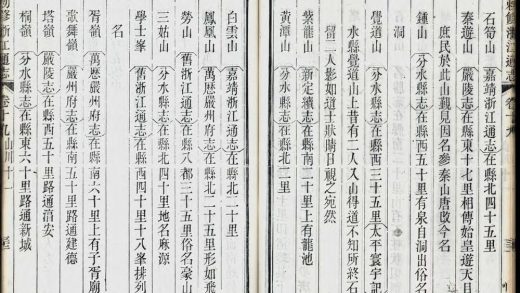 石筍山嘉靖浙江通志在縣北四十五里
秦遊山嚴陵志在縣東十七里相傳始皇遊天目
庶民於此山觀見因名參秦山唐改今名
鍾山分水縣志在縣西五十里有泉自洞出俗名
洞
覺道山分水縣志在縣西三十五里太平寰宇記
水縣覺道山上昔有二人入山得道不知所終石
留二人影如道士狀晴日視之宛然
紫龍山新定續志在縣北二十里上有龍池
黃潭山分水縣志在縣北二里
敕修浙江通志
卷十九山川十一
白雲山嘉靖浙江通志在縣北二十里
鳳凰山萬歷嚴州府志在縣北二十里形如飛
勞山舊浙江通志在縣八都三十五里俗名豪山
三姑山分水縣志在縣西四十里地名麻源
學士峯舊浙江通志在縣西四十里十八峯排列
名
胥嶺萬歷嚴州府志在縣南六十里上有子胥廟
歌舞嶺萬歷嚴州府志在縣南五十里路通建德
塔嶺嚴陵志在縣西五十里路通淳安
桐嶺分水縣志在縣東六十里路通新城